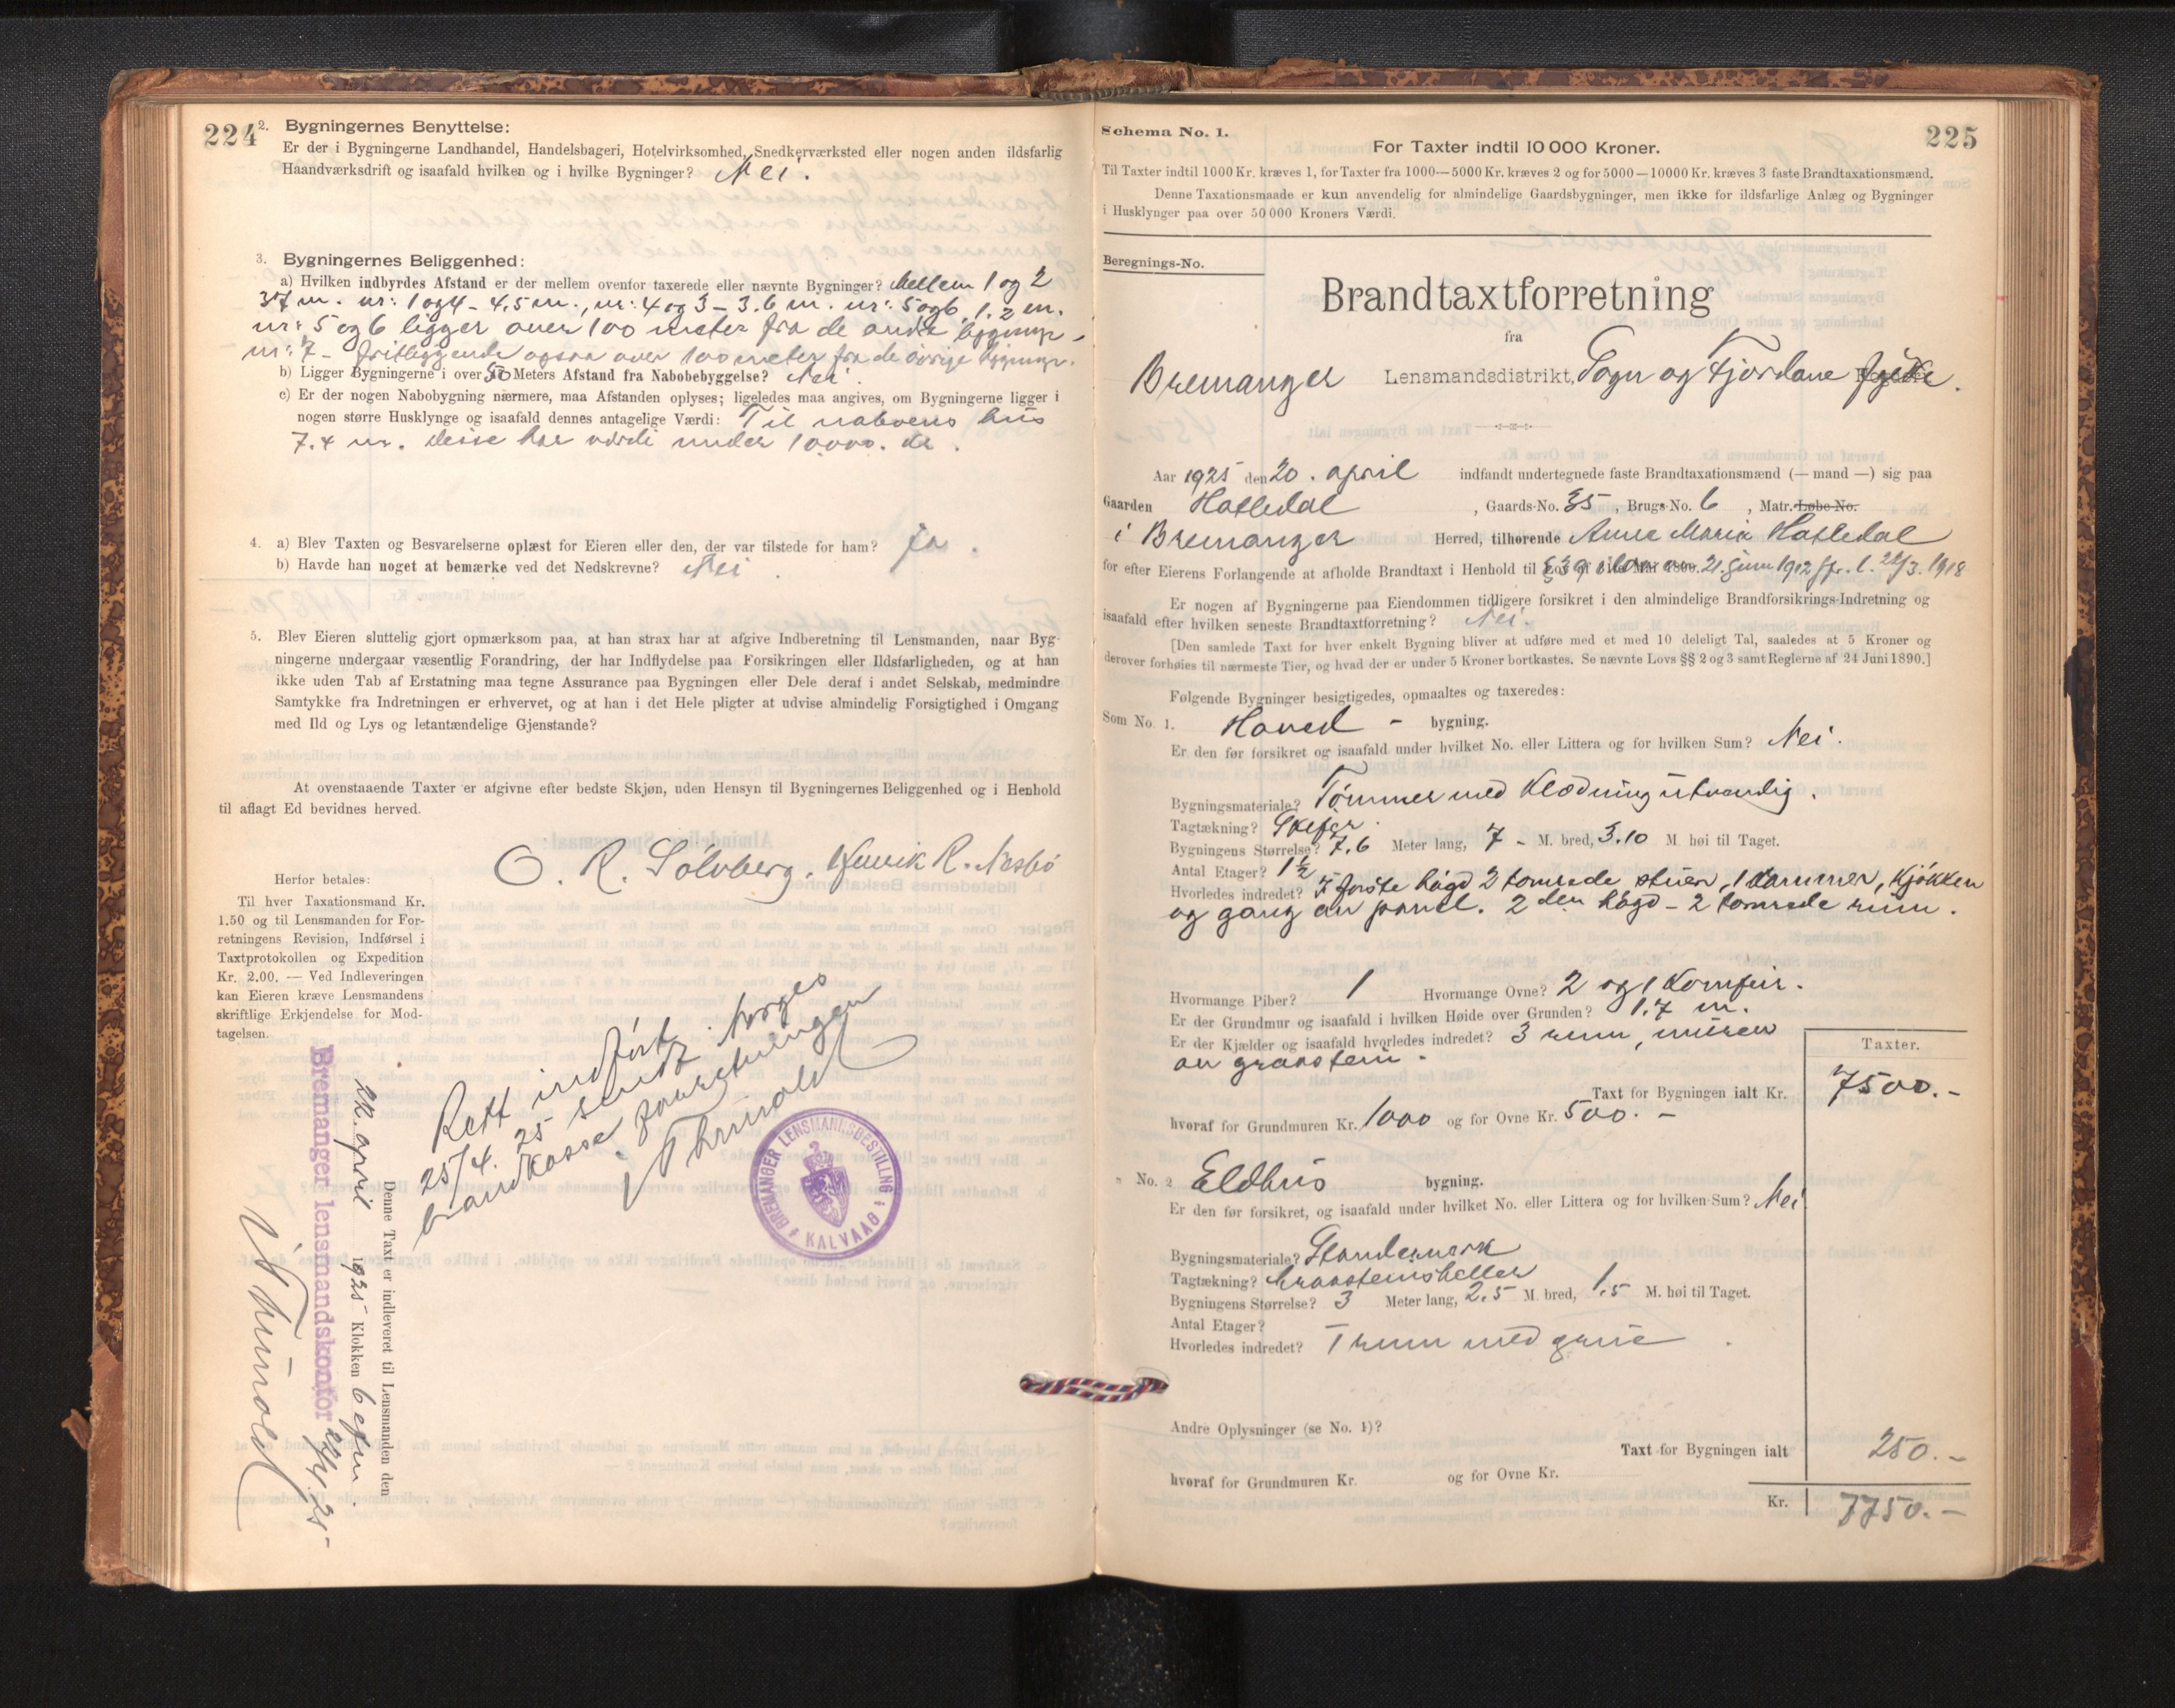 224
2. Bygningernes Benyttelse:
Er der i Bygningerne Landhandel, Handelsbageri, Hotelvirksomhed, Snedkerværksted eller nogen anden ildsfarlig
Haandværksdrift og isaafald hvilken og i hvilke Bygninger? Nei.
3. Bygningernes Beliggenhed:
a) Hvilken indbyrdes Afstand er der mellem ovenfor taxerede eller nævnte Bygninger? Mellem 1 og 2
37 m. nr: 1 og 4 - 4,5 m., nr: 4 og 3 - 3.6 m. nr: 5 og 6 1.2 m.
nr: 5 og 6 ligger over 100 meter fra de andre bygninger.
nr: 7 - fritliggende ogsaa over 100 meter fra de övrige bygninger.
b) Ligger Bygningerne i over 50 Meters Afstand fra Nabobebyggelse? Nei.
c) Er der nogen Nabobygning nærmere, maa Afstanden oplyses; ligeledes maa angives, om Bygningerne ligger i
nogen større Husklynge og isaafald dennes antagelige Værdi: Til naboens hus
7.4 m. disse har værdi under 10,000. kr.
4. a) Blev Taxten og Besvarelserne oplæst for Eieren eller den, der var tilstede for ham? ja.
b) Havde han noget at bemærke ved det Nedskrevne? Nei
5. Blev Eieren sluttelig gjort opmærksom paa, at han strax har at afgive Indberetning til Lensmanden, naar Byg-
ningerne undergaar væsentlig Forandring, der har Indflydelse paa Forsikringen eller Ildsfarligheden, og at han
ikke uden Tab af Erstatning maa tegne Assurance paa Bygningen eller Dele deraf i andet Selskab, medmindre
Samtykke fra Indretningen er erhvervet, og at han i det Hele pligter at udvise almindelig Forsigtighed i Omgang
med Ild og Lys og letantændelige Gjenstande?
At ovenstaaende Taxter er afgivne efter bedste Skjøn, uden Hensyn til Bygningernes Beliggenhed og i Henhold
til aflagt Ed bevidnes herved.
O. R. Sölvberg. Henrik R. Nesbö
Herfor betales:
Til hver Taxationsmand Kr.
1.50 og til Lensmanden for For-
retningens Revision, Indførsel i
Taxtprotokollen og Expedition
Kr. 2.00. — Ved Indleveringen
kan Eieren kræve Lensmandens
skriftlige Erkjendelse for Mod-
tagelsen.
Rett indfört.
25/4. 25 sendt Norges
brandkasse
BREMANGER LENSMANNSBESTILLNG
KALVAAG
Denne Taxt er indleveret til Lensmanden den
24. april 1925 Klokken 6 efm.
Bremanger lensmandskontor 24/4. 25-
Schema No. 1.
225
For Taxter indtil 10 000 Kroner.
Til Taxter indtil 1000 Kr. kræves 1, for Taxter fra 1000—5000 Kr. kræves 2 og for 5000—10000 Kr. kræves 3 faste Brandtaxationsmænd.
Denne Taxationsmaade er kun anvendelig for almindelige Gaardsbygninger, men ikke for ildsfarlige Anlæg og Bygninger
i Husklynger paa over 50 000 Kroners Værdi.
Beregnings-No.
Brandtaxtforretning
fra
Bremanger Lensmandsdistrikt, Sogn og Fjordane fylke.
Aar 1925 den 20. april indfandt undertegnede faste Brandtaxationsmænd (— mand —) sig paa
Gaarden Hatledal, Gaards-No. 35, Brugs-No. 6, Matr. Løbe-No.
i Bremanger Herred, tilhørende Anne Maria Hatledal
for efter Eierens Forlangende at afholde Brandtaxt i Henhold til § 39 i lov av 21. juni 1912 jfr. l. 22/3. 1918
Er nogen af Bygningerne paa Eiendommen tidligere forsikret i den almindelige Brandforsikrings-Indretning og
isaafald efter hvilken seneste Brandtaxtforretning? Nei.
[Den samlede Taxt for hver enkelt Bygning bliver at udføre med et med 10 deleligt Tal, saaledes at 5 Kroner og
derover forhøies til nærmeste Tier, og hvad der er under 5 Kroner bortkastes. Se nævnte Lovs §§ 2 og 3 samt Reglerne af 24 Juni 1890.]
Følgende Bygninger besigtigedes, opmaaltes og taxeredes:
Som No. 1. Hoved - bygning.
Er den før forsikret og isaafald under hvilket No. eller Littera og for hvilken Sum? Nei.
Bygningsmateriale? Tömmer med Klædning utvendig.
Tagtækning? Skifer.
Bygningens Størrelse? 7.6 Meter lang, 7 - M. bred, 3.10 M. høi til Taget.
Antal Etager? 1½
Hvorledes indredet? I förste högd 2 tömrede stuer, 1 Kammer, Kjökken
og gang av panel. 2den högd - 2 tömrede rum.
Hvormange Piber? 1 Hvormange Ovne? 2 og 1 Komfur.
Er der Grundmur og isaafald i hvilken Høide over Grunden? 1.7 m.
Er der Kjælder og isaafald hvorledes indredet? 3 rum, muren
av graasten.
Taxter.
Taxt for Bygningen ialt Kr. 7500.-
hvoraf for Grundmuren Kr. 1000 og for Ovne Kr. 500. -
" No. 2 Eldhus bygning.
Er den før forsikret, og isaafald under hvilket No. eller Littera og for hvilken Sum? Nei
Bygningsmateriale? Standerverk
Tagtækning? Graasteinsheller
Bygningens Størrelse? 3 Meter lang, 2.5 M. bred, 1.5 M. høi til Taget.
Antal Etager?
Hvorledes indredet? 1 rum med grue
Andre Oplysninger (se No. 1)?
Taxt for Bygningen ialt 250.-
hvoraf for Grundmuren Kr. og for Ovne Kr.
Kr. 7750.-